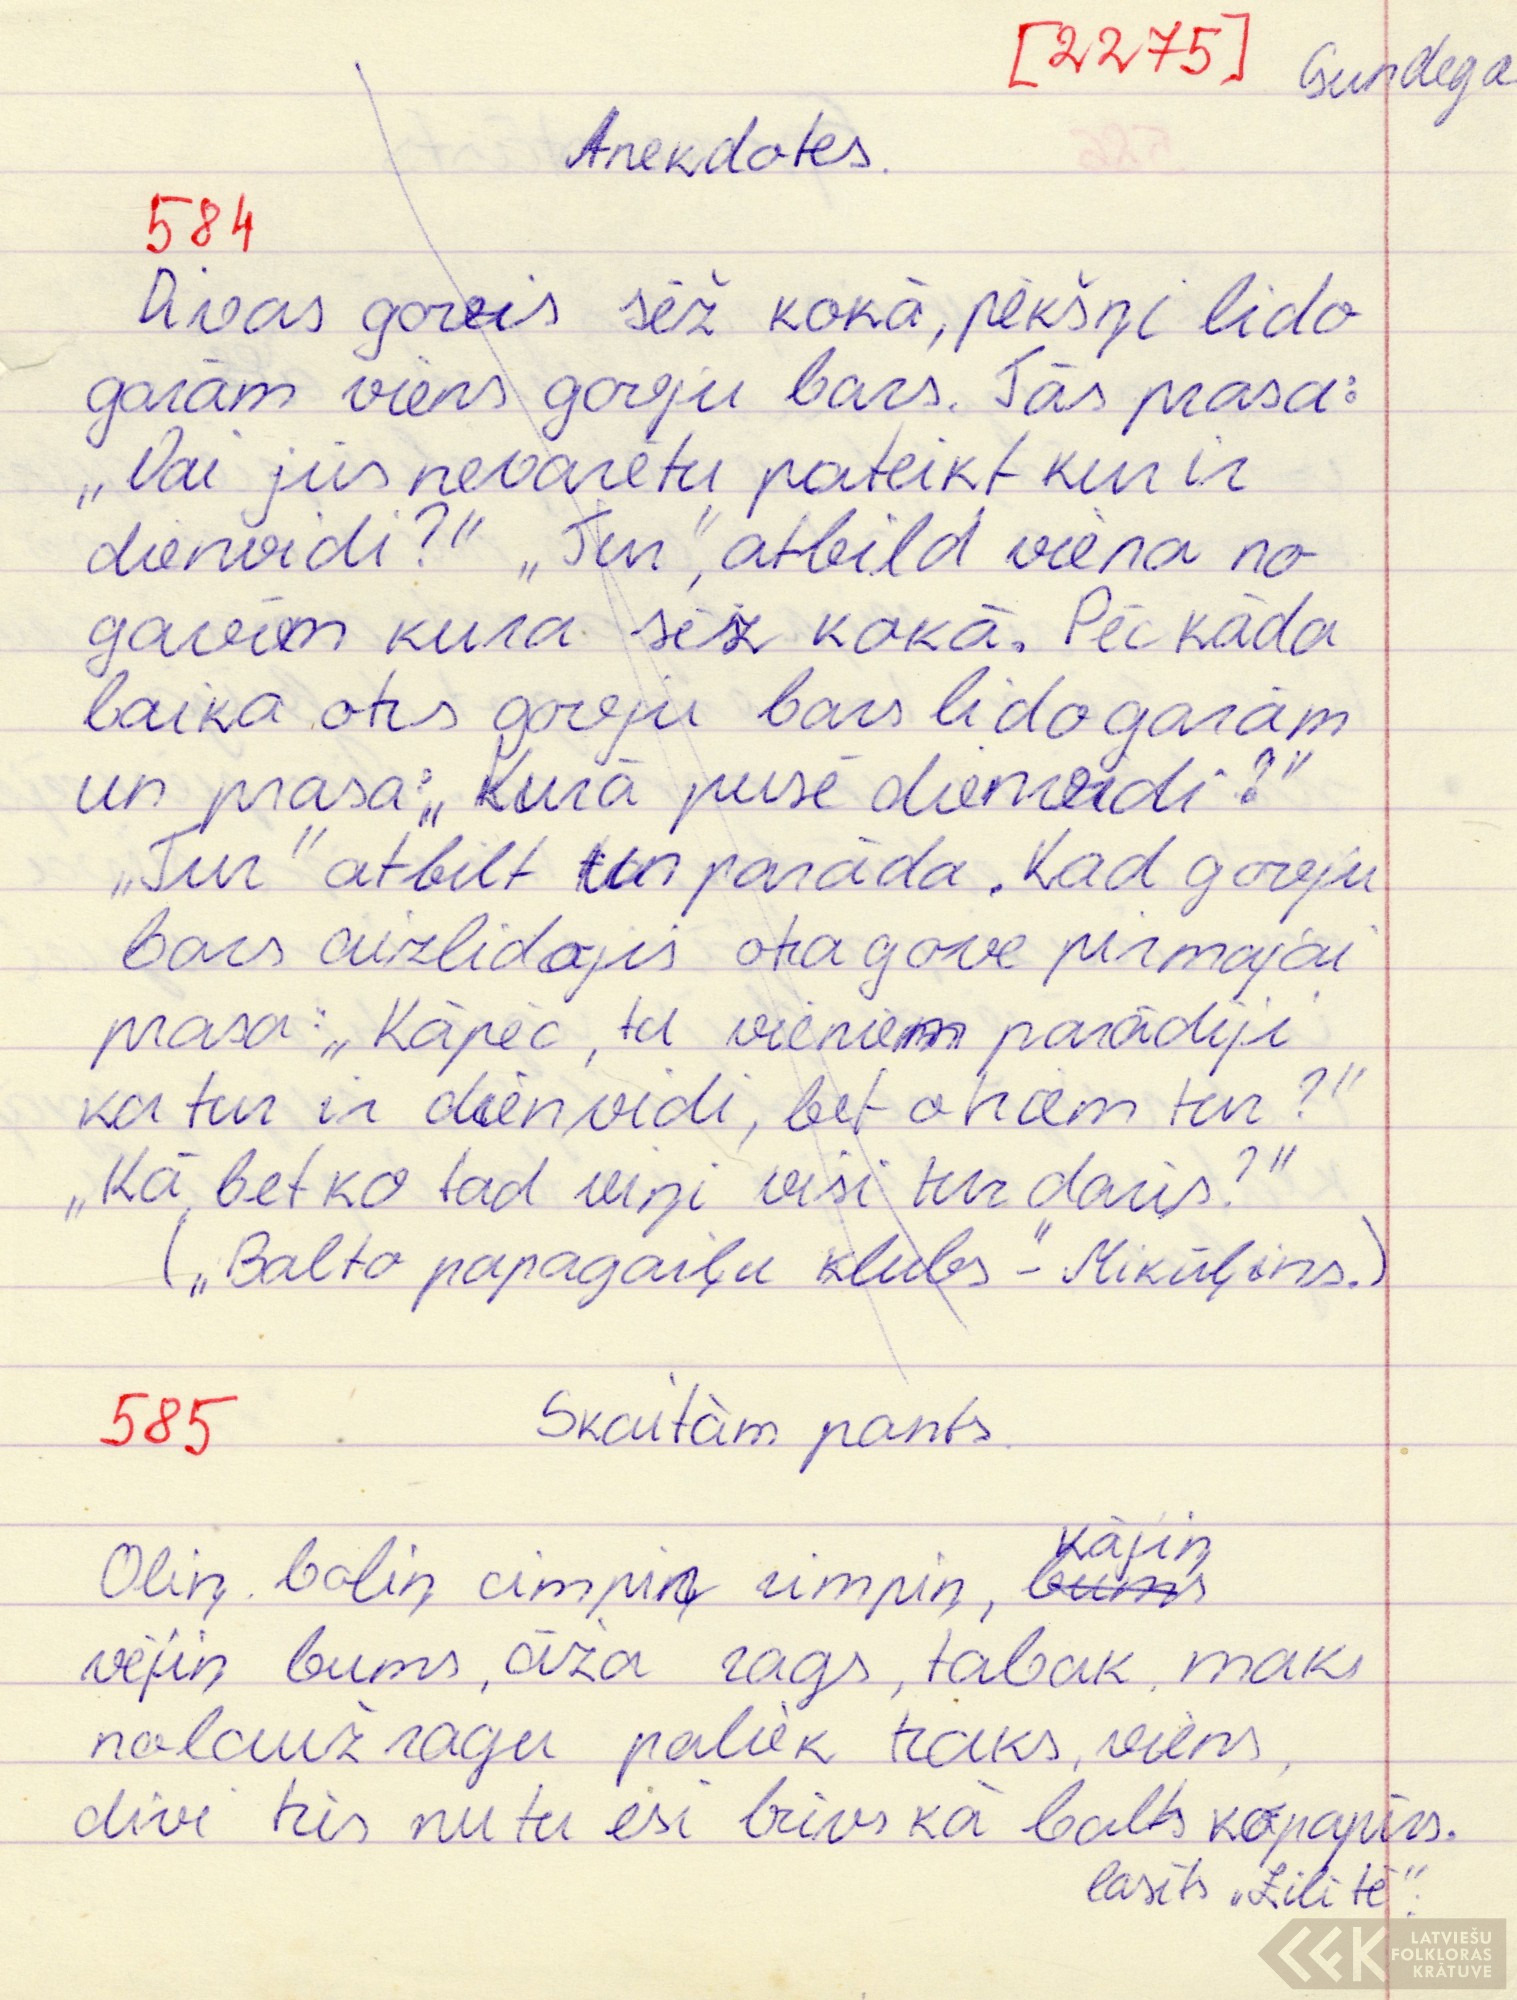 [2275] Gundega
Anekdotes.
584
Divas govis sēž kokā, pēkšņi lido
garām viens govju bars. Tās prasa:
„Vai jūs nevarētu pateikt kur ir
dienvidi?" „Tur", atbild viena no
govīm kura sēž kokā. Pēc kāda
laika otrs govju bars lido garām
un prasa: „Kurā pusē dienvidi?"
„Tur" atbilt un parāda. Kad govju
bars aizlidojis otra gove pirmajai
prasa: „Kāpēc, tu vieniem parādīji
ka tur ir dienvidi, bet otriem tur?"
„Kā, bet ko tad viņi visi tur darīs?"
(„Balto papagaiļu klubs" - Mikūļins.)
585 Skaitām pants.
Oliņ. boliņ cimpiņ rimpiņ, kājiņ
bums
vējiņ bums, āža rags, tabak maks
nolauž ragu paliek traks, viens,
divi trīs nu tu esi brīvs kā balts kopapīrs.
lasīts „Zīlītē".
LATVIEŠU
FOLKLORAS
KRĀTUVE